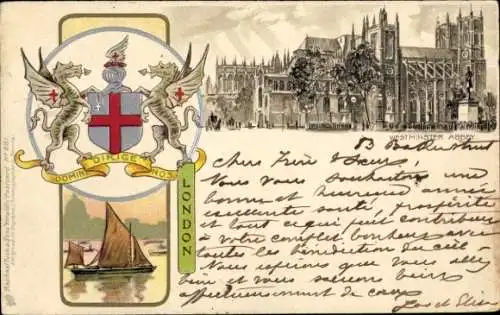 DOMINE DIRIGE NOS
LONDON
WESTMINSTER ABBEY
53 Baker Street
Chers Frère & Sœur,
Nous vous souhaitons une
bonne et heureuse année
excellente santé, prospérité
et tout ce qui peut contribuer
à votre complet bonheur avec
toutes les bénédiction du ciel –
Nous espérons que vous allez
bien et vous saluons bien
affectueusement de cœur
Raphael Tuck & Sons